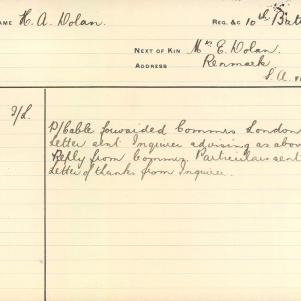 NAME H. A. Dolan. REG. &C 10th Batt
NEXT OF KIN Mrs. E. Dolan.
ADDRESS Renmark
S.A.
D/Cable forwarded Commis London
Letter sent Inquirer advising as above
Reply from Commis. Particulars sent
Letter of thanks from Inquirer.